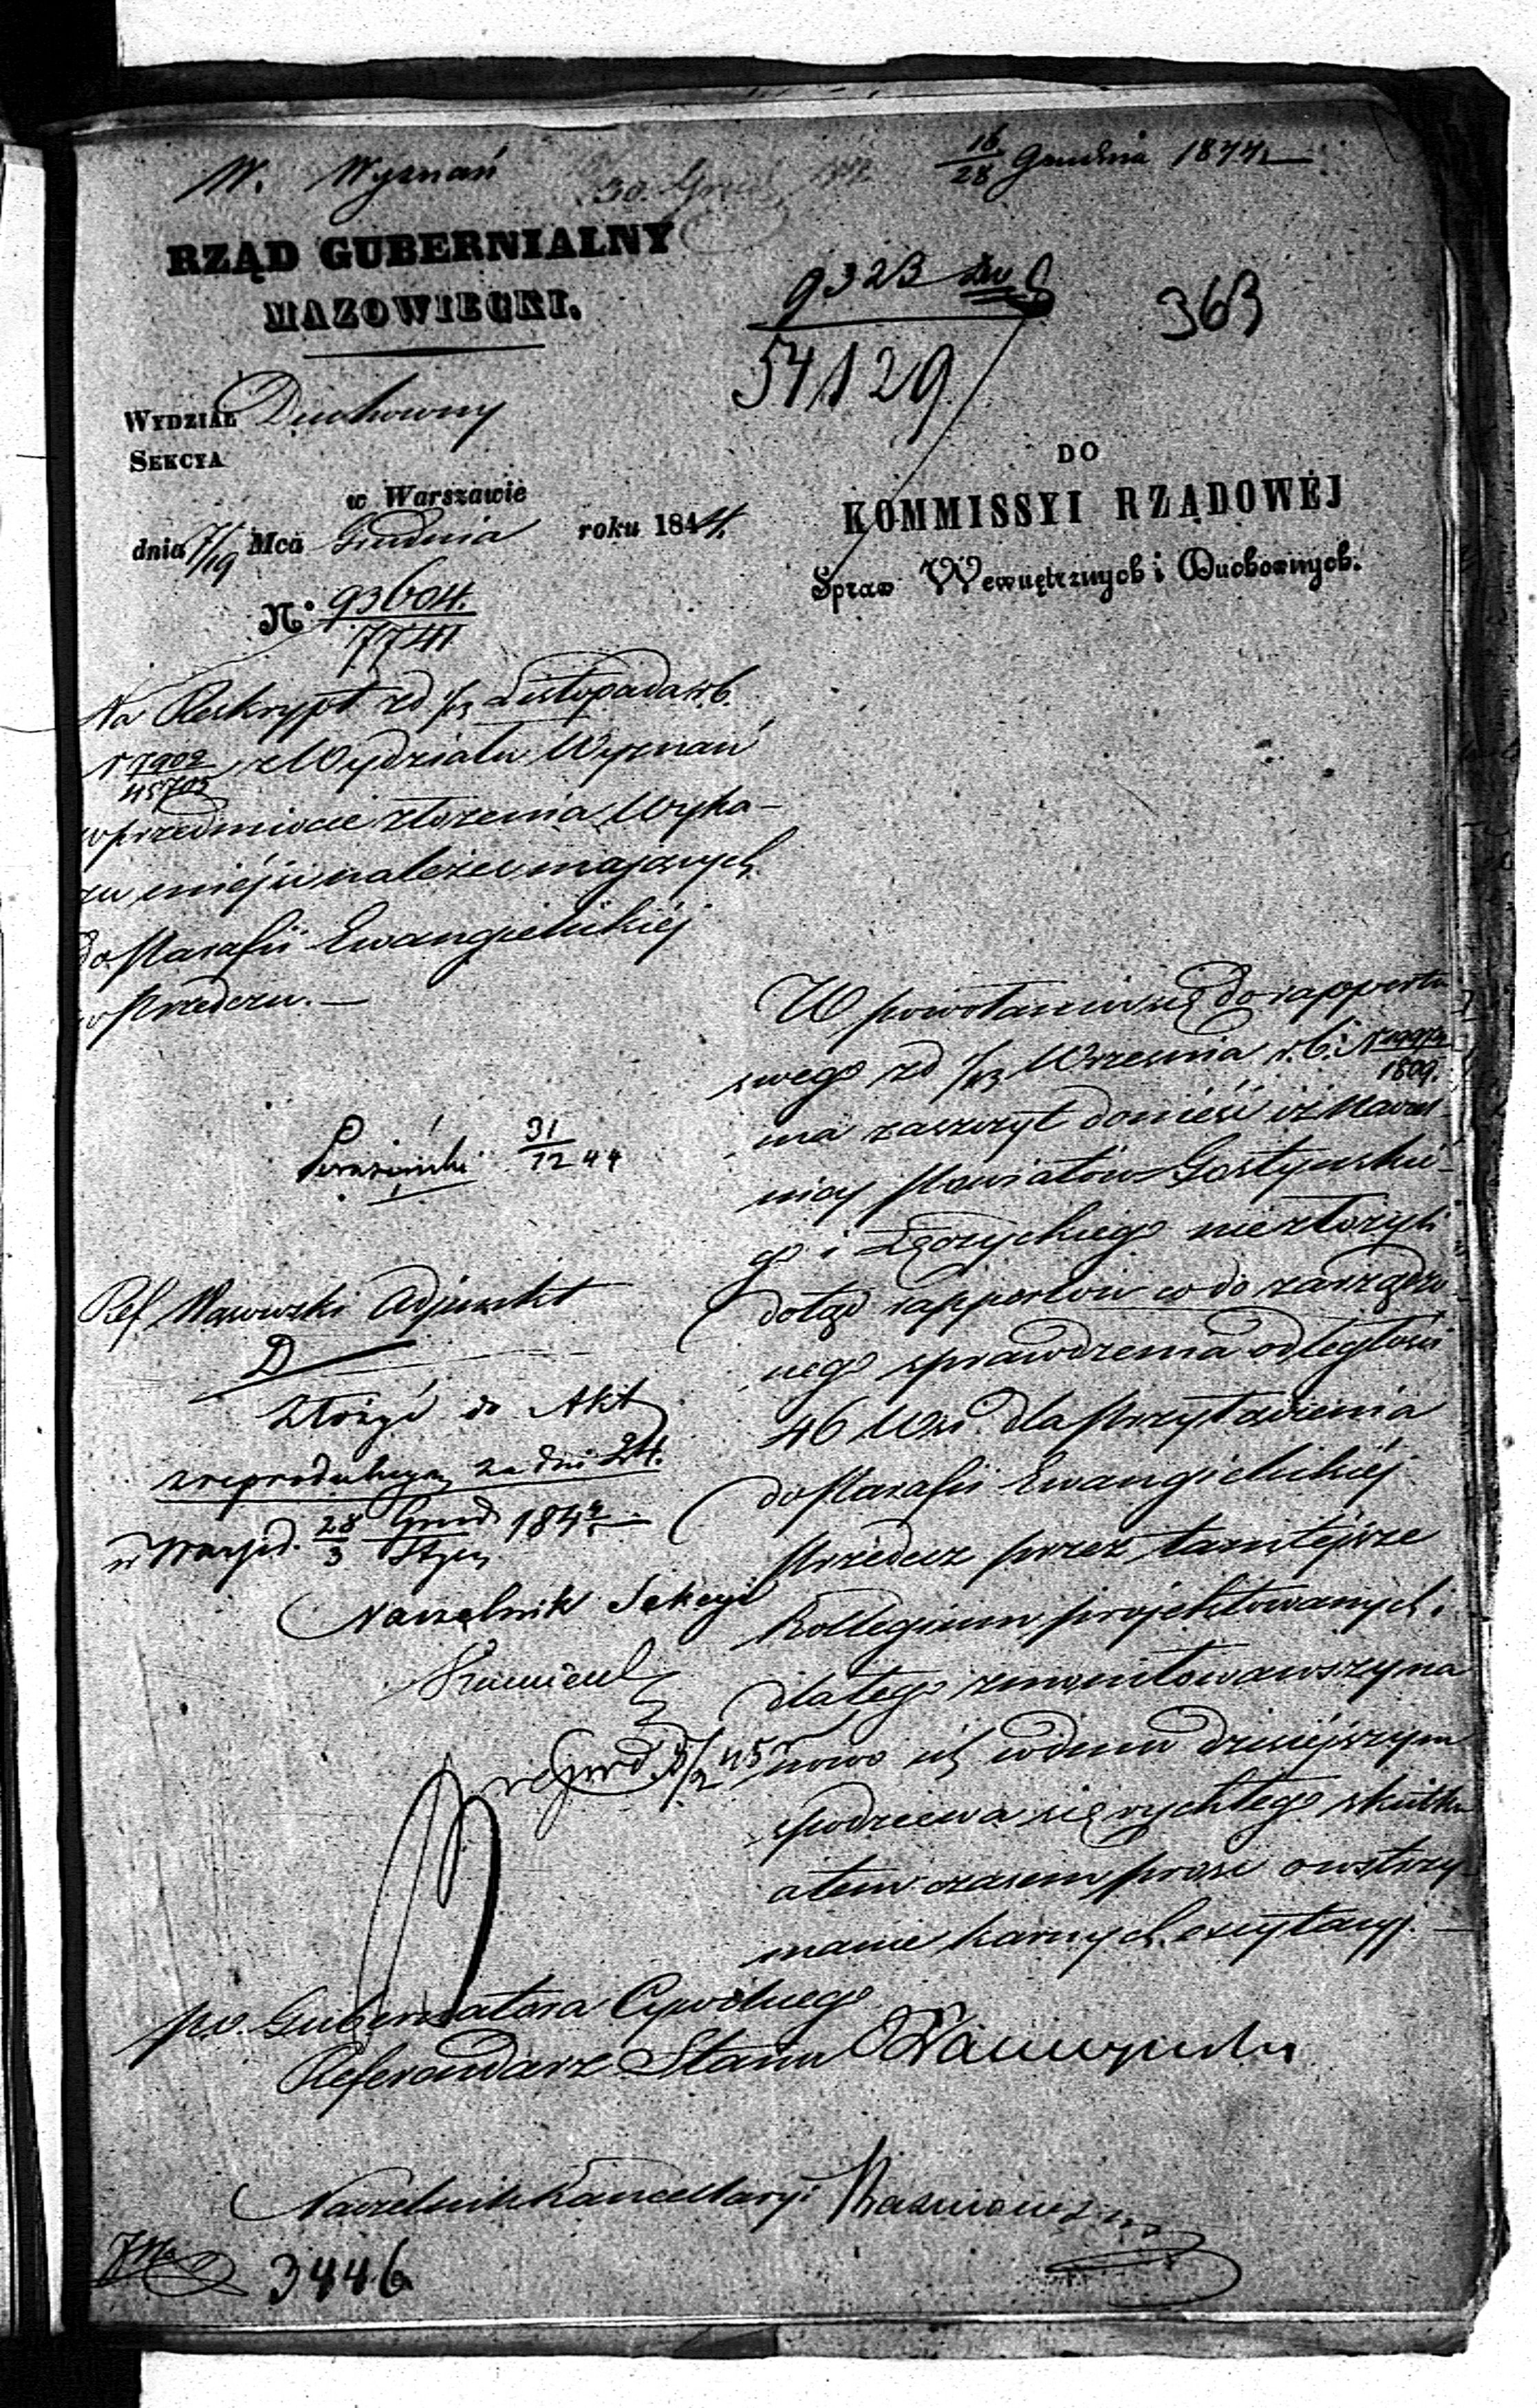 W. Wyznań
16/28 Grudnia 1844
30. Grud
RZĄD GUBERNIALNY
MAZOWIECKI.
9323
54129
363
WYDZIAŁ Duchowny
SEKCYA
w Warszawie
dnia 7/19 Mca Grudnia roku 1844.
No. 93604./7741
DO
KOMMISSYI RZĄDOWÉJ
Spraw Wewnętrznych i Duchownych.
Na Reskrypt zd 1/13 Listopada r.b.
N 7902/45703 z Wydziału Wyznań
w przedmiocie złożenia Wyka-
zu miéjsc należeć mających
do Parafii Ewangielickiéj
w Przedczu. —
W powołaniu się do rapportu
swego zd 1/13 Września r.b. N
1809.
ma zaszczyt donieść iż Naczel-
nicy Powiatów Gostyńskie-
go i Łęczyckiego nie złożyli
dotąd rapportów co do zarządzo-
nego sprawdzenia odległości
46 Wsi dla przyłączenia
do Parafii Ewangielickiéj
Przedecz przez tamtéjsze
Kollegium projektowanych,
dlatego zmonitowawszy na
nowo ich w dniu dzisiéjszym
spodziewa się rychłego skutku
a tem czasem prosi o wstrzy-
manie karnych excytacyj. —
31/12 44
Ref. Wąsowski Adjunkt
D
Złożyć do Akt
z reprodukcyą za dni 24.
w Warszaw. 28 Grud/3 Stycz 184
Naczelnik Sekcyi
5/2 45
p.o. Gubernatora Cywilnego
Referendarz Stanu
Naczelnik Kancellaryi
3446